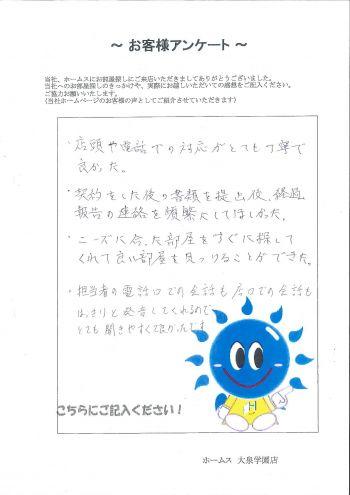 ～ お客様アンケート ～
当社、ホームスにお部屋探しにご来店いただきましてありがとうございました。
当社へのお部屋探しのきっかけや、実際にお越しいただいての感想をご記入ください。
ご協力お願いいたします。
(当社ホームページのお客様の声としてご紹介させていただきます)
・店頭や電話での対応がとても丁寧で
良かった。
・契約をした後の書類を提出後、経過
報告の連絡を頻繁にしてほしかった。
・ニーズに合った部屋をすぐに探して
くれて良い部屋を見つけることができた。
・担当者の電話口での会話も店口での会話も
はっきりと発音してくれるので
とても聞きやすくて良かったです
こちらにご記入ください！
H
ホームス 大泉学園店